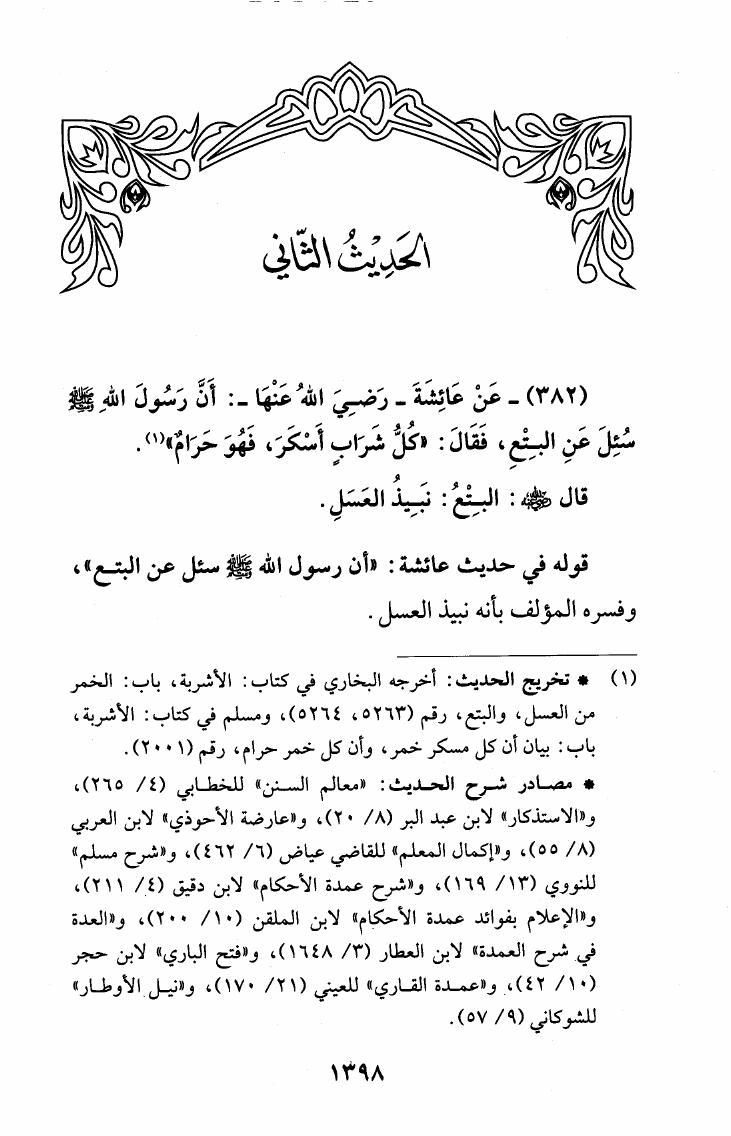 الحَدِيْثُ الثّاني
(٣٨٢) ـ عَنْ عَائِشَةَ ـ رَضِيَ اللهُ عَنْهَا ـ: أَنَّ رَسُولَ اللهِ ﷺ
سُئِلَ عَنِ البِتْعِ، فَقَالَ: «كُلُّ شَرَابٍ أَسْكَرَ، فَهُوَ حَرَامٌ»(١).
قال ﵁: البِتْعُ: نَبِيذُ العَسَلِ.
قوله في حديث عائشة: «أن رسول الله ﷺ سئل عن البتع»،
وفسره المؤلف بأنه نبيذ العسل.
(١) * تخريج الحديث: أخرجه البخاري في كتاب: الأشربة، باب: الخمر
من العسل، والبتع، رقم (٥٢٦٣، ٥٢٦٤)، ومسلم في كتاب: الأشربة،
باب: بيان أن كل مسكر خمر، وأن كل خمر حرام، رقم (٢٠٠١).
* مصادر شرح الحديث: «معالم السنن» للخطابي (٤/ ٢٦٥)،
و«الاستذكار» لابن عبد البر (٨/ ٢٠)، و«عارضة الأحوذي» لابن العربي
(٨/ ٥٥)، و«إكمال المعلم» للقاضي عياض (٦/ ٤٦٢)، و«شرح مسلم»
للنووي (١٣/ ١٦٩)، و«شرح عمدة الأحكام» لابن دقيق (٤/ ٢١١)،
و«الإعلام بفوائد عمدة الأحكام» لابن الملقن (١٠/ ٢٠٠)، و«العدة
في شرح العمدة» لابن العطار (٣/ ١٦٤٨)، و«فتح الباري» لابن حجر
(١٠/ ٤٢)، و«عمدة القاري» للعيني (٢١/ ١٧٠)، و«نيل الأوطار»
للشوكاني (٩/ ٥٧).
١٣٩٨